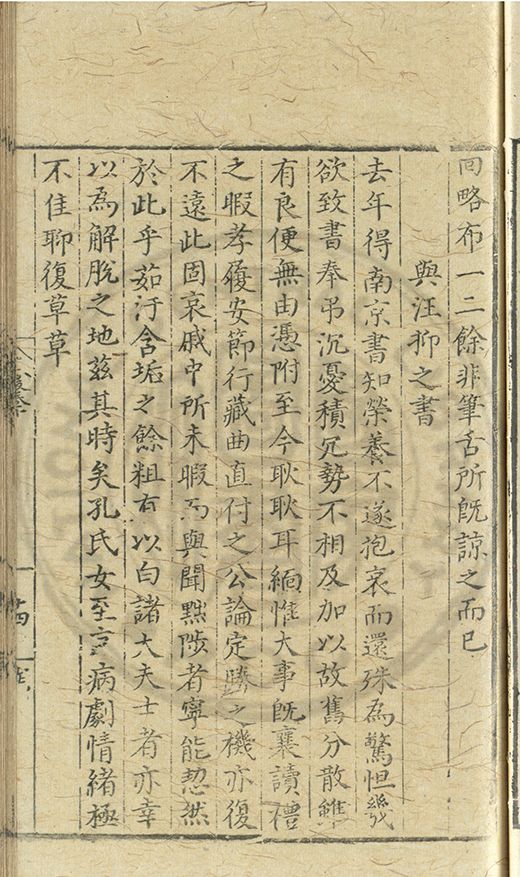 向略布一二餘非筆舌所旣諒之而已
與汪抑之書
去年得南京書知榮養不遂抱哀而還殊為驚怛幾
欲致書奉弔沉憂積冗勢不相及加以故舊分散鮮
有良便無由憑附至今耿耿耳緬惟大事旣襄讀禮
之暇孝履安節行藏曲直付之公論定勝之機亦復
不遠此固哀戚中所未暇與聞黜陟者寧能恝然
於此乎茹汙含垢之餘粗有以白諸大夫士者亦幸
以為解脫之地玆其時矣孔氏女至京病劇情緒極
不佳聊復草草